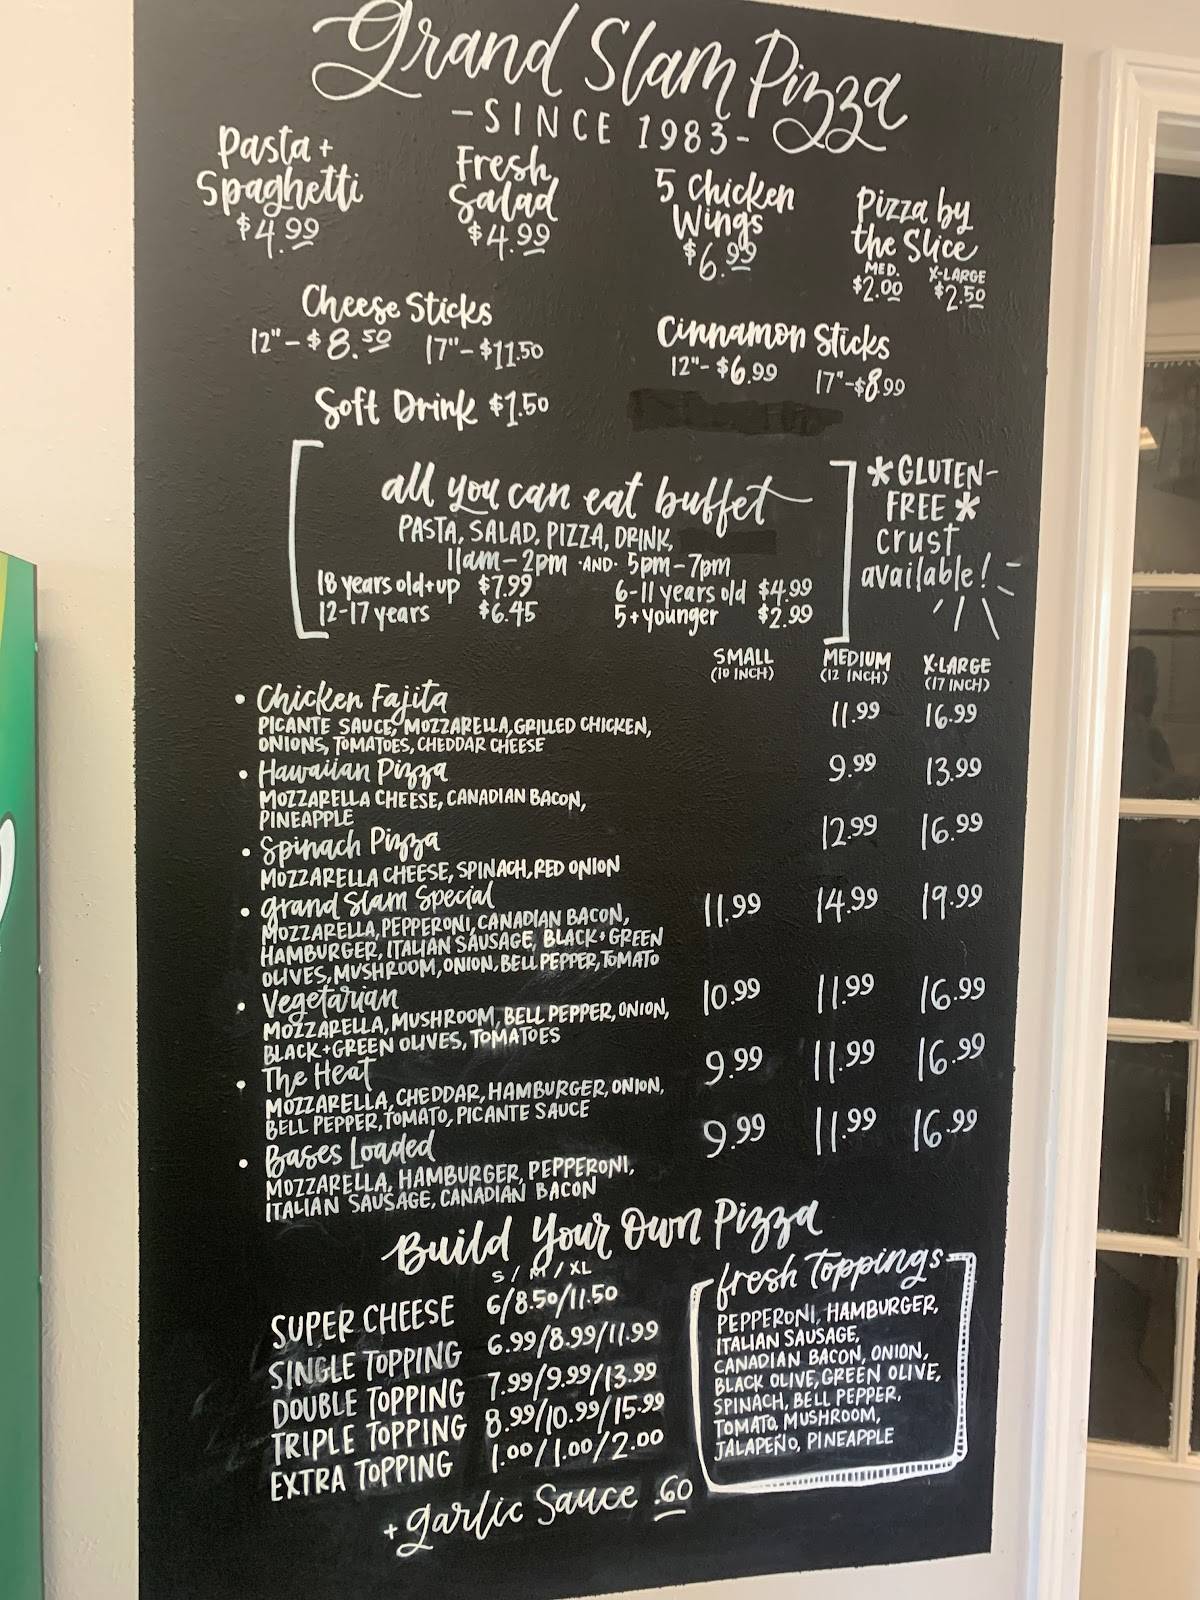 Grand Slam Pizza
- SINCE 1983 -
Pasta +
Spaghetti
$4.99
Fresh
Salad
$4.99
5 Chicken
Wings
$6.99
Pizza by
the Slice
MED. X-LARGE
$2.00 $2.50
Cheese Sticks
12" - $8.50 17" - $11.50
Cinnamon Sticks
12" - $6.99 17" - $8.99
Soft Drink $1.50
all you can eat buffet
PASTA, SALAD, PIZZA, DRINK,
11am - 2pm ·AND· 5pm - 7pm
18 years old + up $7.99 6-11 years old $4.99
12-17 years $6.45 5 + younger $2.99
*GLUTEN-
FREE*
crust
available!
SMALL MEDIUM X-LARGE
(10 INCH) (12 INCH) (17 INCH)
• Chicken Fajita 11.99 16.99
PICANTE SAUCE, MOZZARELLA, GRILLED CHICKEN,
ONIONS, TOMATOES, CHEDDAR CHEESE
• Hawaiian Pizza 9.99 13.99
MOZZARELLA CHEESE, CANADIAN BACON,
PINEAPPLE
• Spinach Pizza 12.99 16.99
MOZZARELLA CHEESE, SPINACH, RED ONION
• Grand Slam Special 11.99 14.99 19.99
MOZZARELLA, PEPPERONI, CANADIAN BACON,
HAMBURGER, ITALIAN SAUSAGE, BLACK + GREEN
OLIVES, MUSHROOM, ONION, BELL PEPPER, TOMATO
• Vegetarian 10.99 11.99 16.99
MOZZARELLA, MUSHROOM, BELL PEPPER, ONION,
BLACK + GREEN OLIVES, TOMATOES
• The Heat 9.99 11.99 16.99
MOZZARELLA, CHEDDAR, HAMBURGER, ONION,
BELL PEPPER, TOMATO, PICANTE SAUCE
• Bases Loaded 9.99 11.99 16.99
MOZZARELLA, HAMBURGER, PEPPERONI,
ITALIAN SAUSAGE, CANADIAN BACON
Build Your Own Pizza
S / M / XL
SUPER CHEESE 6/8.50/11.50
SINGLE TOPPING 6.99/8.99/11.99
DOUBLE TOPPING 7.99/9.99/13.99
TRIPLE TOPPING 8.99/10.99/15.99
EXTRA TOPPING 1.00/1.00/2.00
+ garlic Sauce .60
fresh toppings
PEPPERONI, HAMBURGER,
ITALIAN SAUSAGE,
CANADIAN BACON, ONION,
BLACK OLIVE, GREEN OLIVE,
SPINACH, BELL PEPPER,
TOMATO, MUSHROOM,
JALAPEÑO, PINEAPPLE